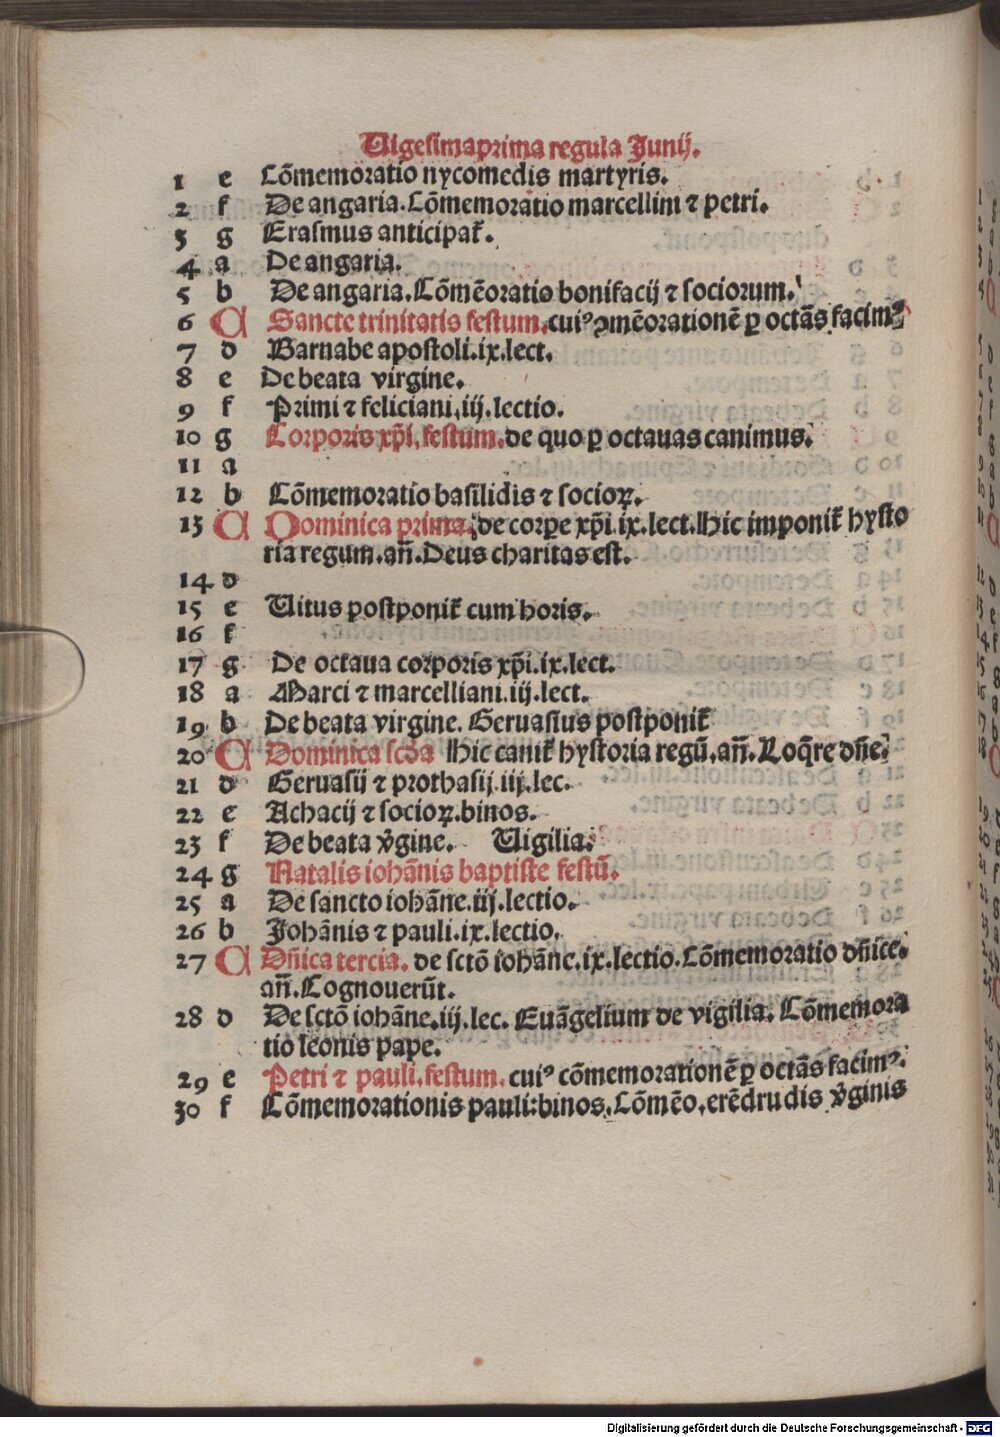 Uigesimaprima regula Junij.
1 e Cõmemoratio nycomedis martyris.
2 f De angaria. Cõmemoratio marcellini ⁊ petri.
3 g Erasmus anticipat̃.
4 a De angaria.
5 b De angaria. Cõmẽoratio bonifacij ⁊ sociorum.
6 A Sancte trinitatis festum. cuiꝰ ꝯmẽorationẽ ꝑ octãs facimꝰ
7 d Barnabe apostoli. ix. lect.
8 e De beata virgine.
9 f Primi ⁊ feliciani. iij. lectio.
10 g Corporis xp̃i. festum. de quo ꝑ octauas canimus.
11 a
12 b Cõmemoratio basilidis ⁊ socioꝝ.
13 A Dominica prima. de corꝑe xp̃i. ix. lect. Hic imponit̃ hysto
ria regum. añ. Deus charitas est.
14 d
15 e Uitus postponit̃ cum horis.
16 f
17 g De octaua corporis xp̃i. ix. lect.
18 a Marci ⁊ marcelliani. iij. lect.
19 b De beata virgine. Geruasius postponit̃
20 A Dominica scd̃a Hic canit̃ hystoria regũ. añ. Loq̃re dñe.
21 d Geruasij ⁊ prothasij. iij. lec.
22 e Achacij ⁊ socioꝝ. binos.
23 f De beata v̾gine. Uigilia.
24 g Natalis iohãnis baptiste festũ.
25 a De sancto iohãne. iij. lectio.
26 b Johãnis ⁊ pauli. ix. lectio.
27 A Dñica tercia. de sctõ iohãne. ix. lectio. Cõmemoratio dñice.
añ. Cognouerũt.
28 d De sctõ iohãne. iij. lec. Euãgelium de vigilia. Cõmemora
tio leonis pape.
29 e Petri ⁊ pauli. festum. cuiꝰ cõmemorationẽ ꝑ octãs facimꝰ.
30 f Cõmemorationis pauli: binos. Cõmẽo. erẽdrudis v̾ginis
Digitalisierung gefördert durch die Deutsche Forschungsgemeinschaft - DFG